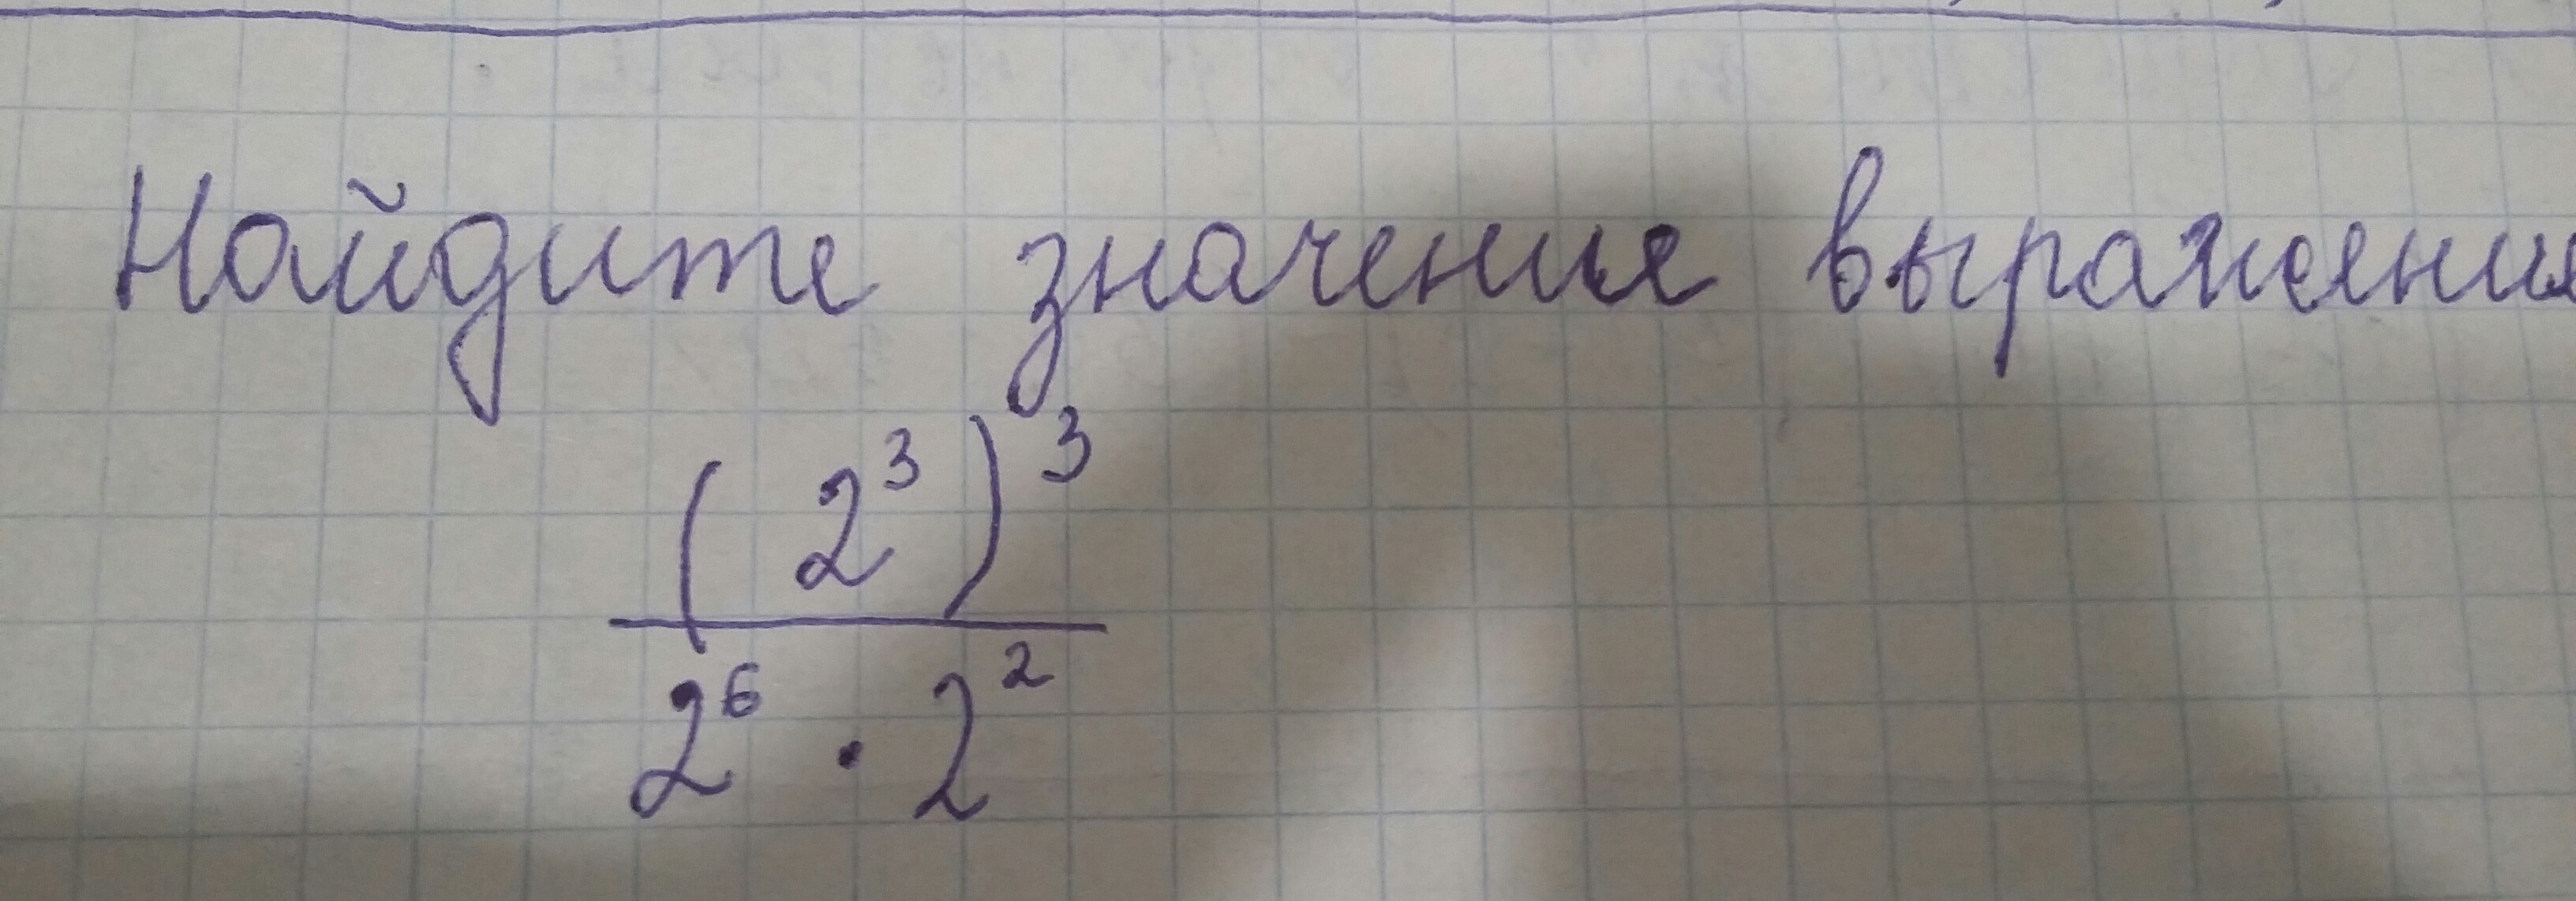 Найдите значение выражения
(2³)³
2⁶ · 2²